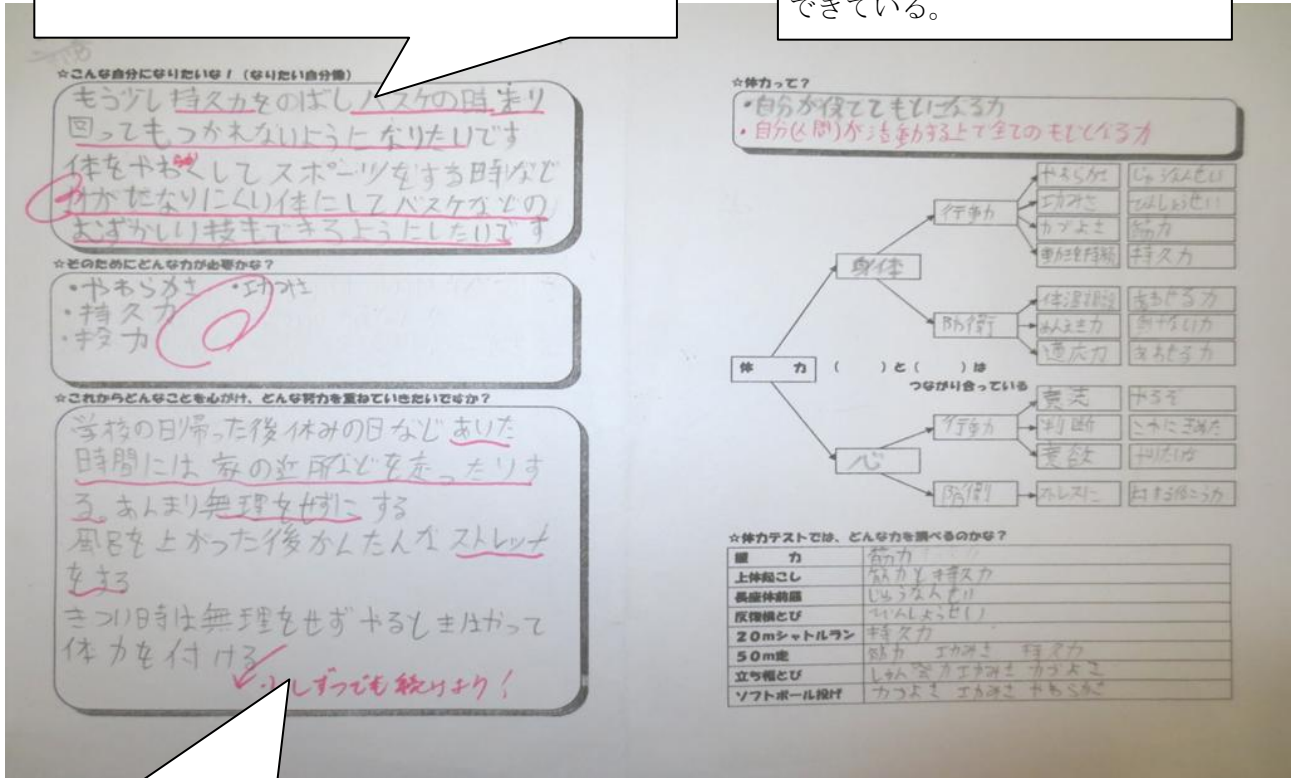 できている。
☆こんな自分になりたいな！（なりたい自分像）
もう少し持久力をのばしバスケの時走り
回ってもつかれないようになりたいです
体をやわらかくしてスポーツをする時など
けがになりにくい体にしてバスケなどの
むずかしい技もできるようにしたいです
☆そのためにどんな力が必要かな？
・やわらかさ ・巧みさ
・持久力
・筋力
☆これからどんなことを心がけ、どんな努力を重ねていきたいですか？
学校の日帰った後休みの日などあいた
時間には家の近所などを走ったりす
る。あんまり無理をせずにする
風呂を上がった後かんたんなストレッチ
をする
きつい時は無理をせずやるときはやって
体力を付ける
少しずつでも続けよう！
☆体力って？
・自分が使ててもとになる力
・自分(人間)が活動する上で全てのもとになる力
体 力
（ ）と（ ）は
つながり合っている
身体
行動力
やわらかさ じゅうなんせい
巧みさ びんしょうせい
力づよさ 筋力
動きを持続 持久力
防衛
体温調節
めんえき力 負けない力
適応力 あわせる力
心
行動力
意志 やるぞ
判断 これにきめた
意欲 やりたいな
防衛
ストレスに 対する抵こう力
☆体力テストでは、どんな力を調べるのかな？
握 力 筋力
上体起こし 筋力と持久力
長座体前屈 じゅうなんせい
反復横とび びんしょうせい
20mシャトルラン 持久力
50m走 筋力 巧みさ 持久力
立ち幅とび しゅん発力 巧みさ 力づよさ
ソフトボール投げ 力づよさ 巧みさ やわらかさ